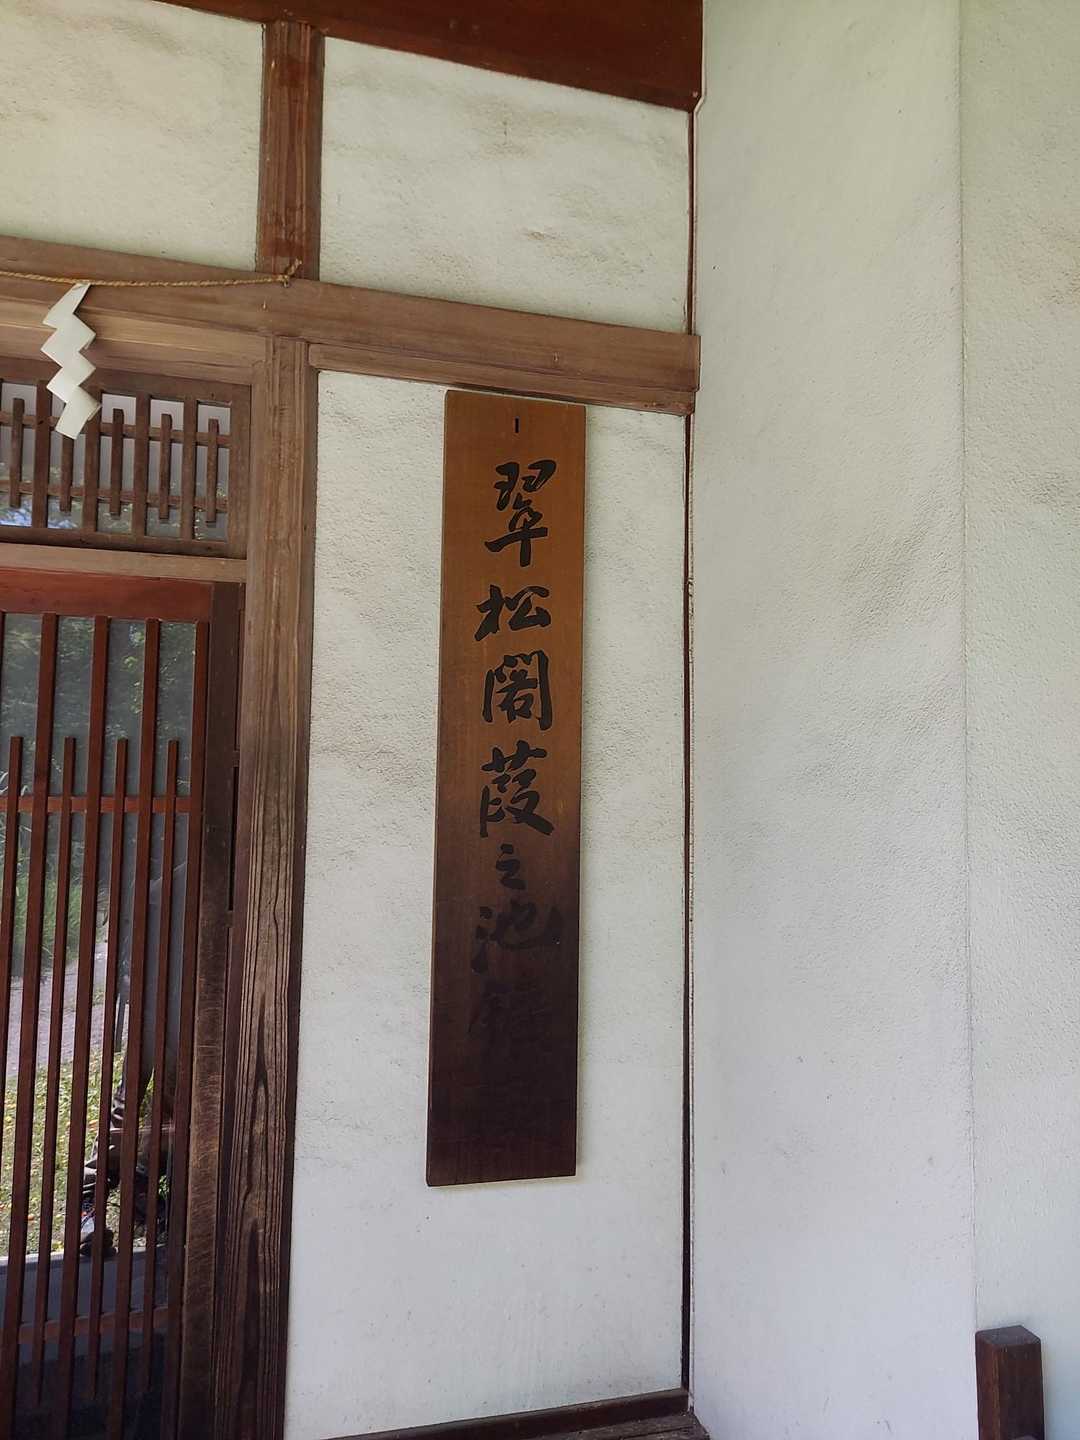 翠松閣葭之池